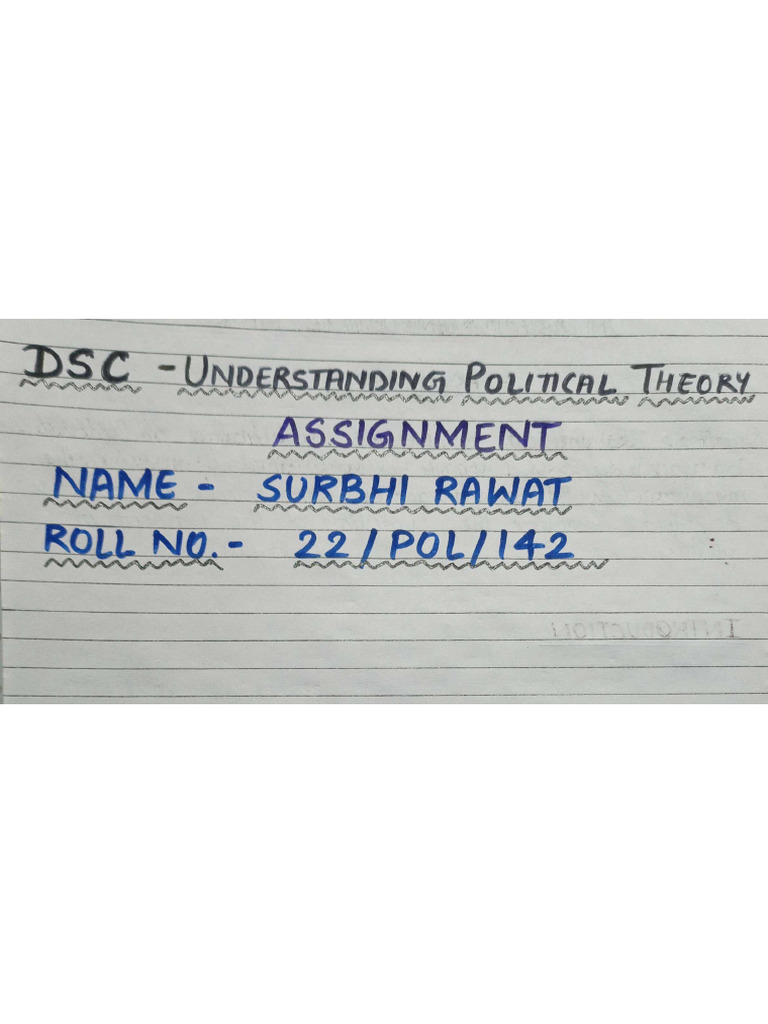 DSC - UNDERSTANDING POLITICAL THEORY
ASSIGNMENT
NAME - SURBHI RAWAT
ROLL NO. - 22/POL/142